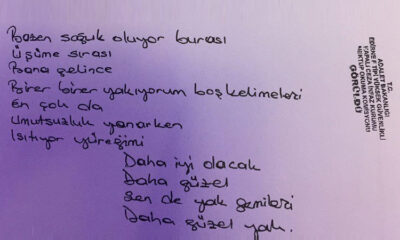 Bazen soğuk oluyor burası
Üşüme sırası
Bana gelince
Birer birer yakıyorum boş kelimeleri
En çok da
Umutsuzluk yanarken
Isıtıyor yüreğimi
Daha iyi olacak
Daha güzel
Sen de yak gemileri
Daha güzel yak.
T.C.
ADALET BAKANLIĞI
EDİRNE F TİPİ YÜKSEK GÜVENLİKLİ
KAPALI CEZA İNFAZ KURUMU
MEKTUP OKUMA KOMİSYONU
GÖRÜLDÜ